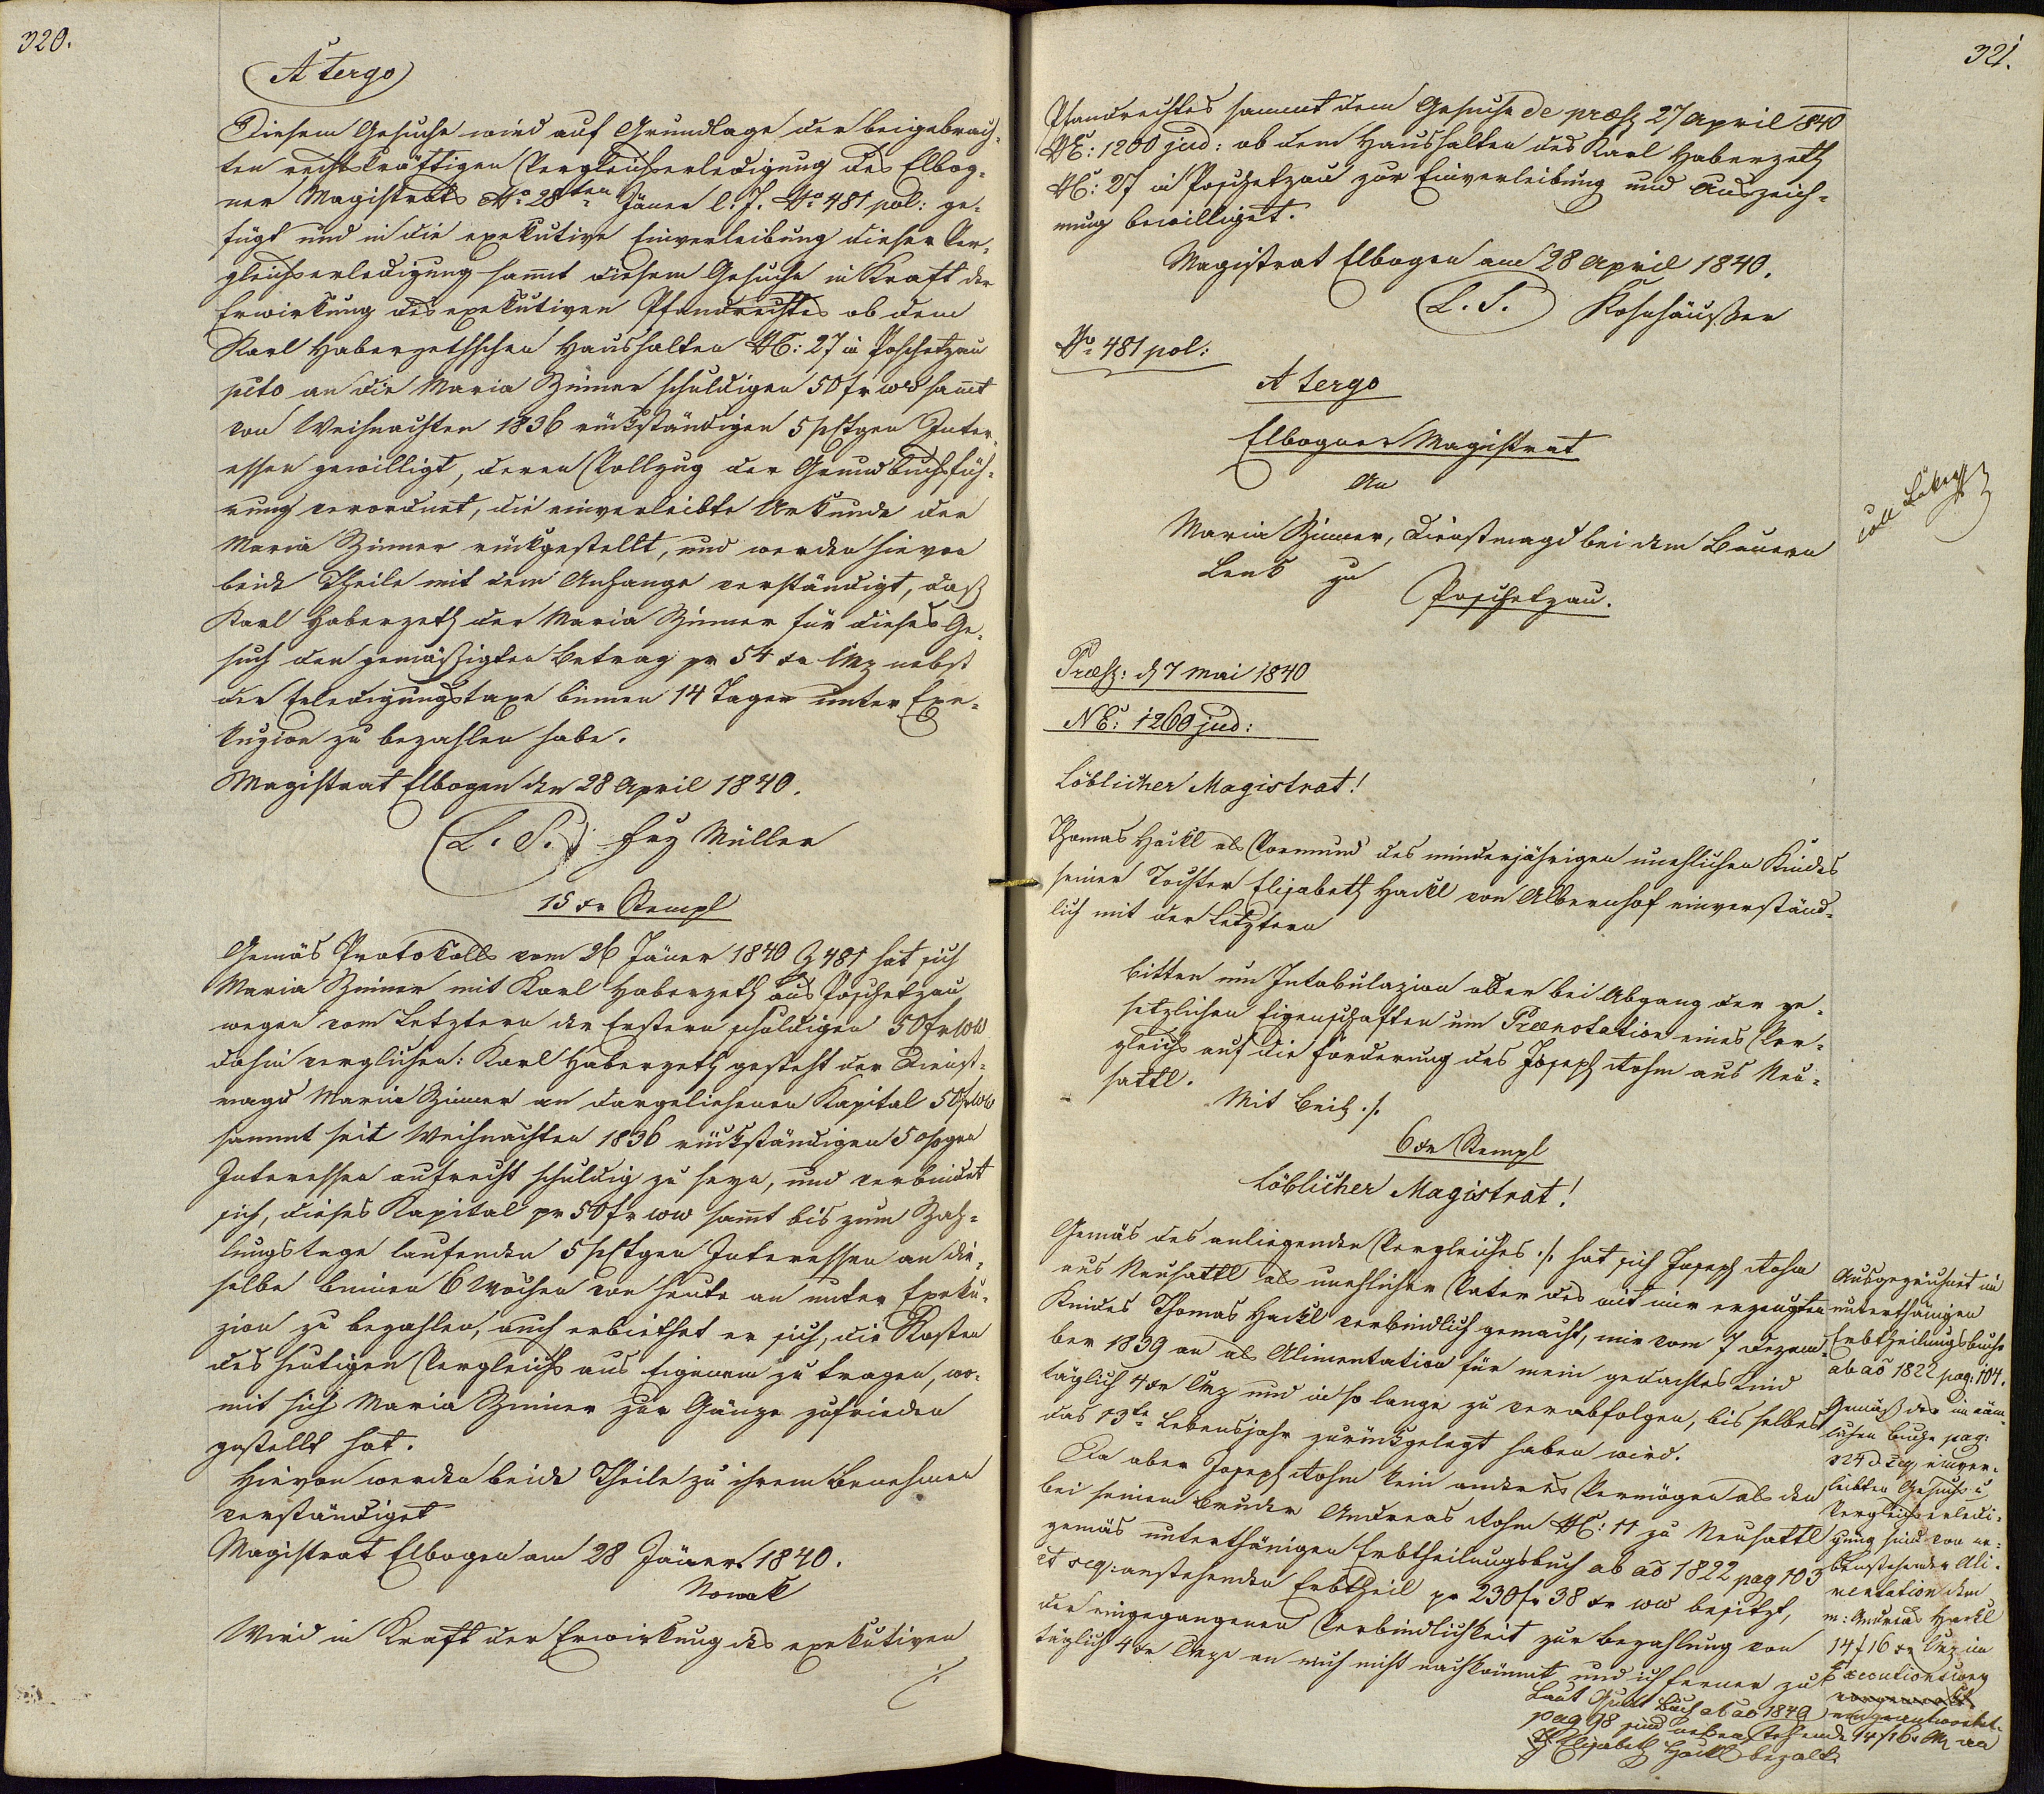 320.
A tergo
Diesem Gesuche wird auf Grundlage der beigebrach-
ten rechtskräftigen Vergleichserledigung des Elbog-
ner Magistrats No. 28ten Jäner l: J. No. 481 pol: ge-
fügt und in die exekutive Einverleibung dieser Ver-
gleichserledigung samt diesem Gesuche in Kraft der
Erwirkung des exekutiven Pfandrechtes ob dem
Karl Haberzethschen Haushalten NC: 27 in Poschetzau
pcto an die Maria Zinner schuldigen 50 fr ww samt
von Weihnachten 1836 rückständigen 5 pctgen Inter-
essen gewilligt, deren Vollzug der Grundbuchsfüh-
rung verordnet, die einverleibte Urkunde der
Maria Zinner rückgestellt, und werden hievon
beide Theile mit dem Anhange verständigt, daß
Karl Haberzeth der Maria Zinner für dieses Ge-
such den gemäßigten Betrag pr 54 xr CMz nebst
der Erledigungstaxe binnen 14 Tagen unter Exe-
kuzion zu bezahlen habe.
Magistrat Elbogen den 28 April 1840.
(L. S.) Müller
15 xr Stempl
Gemäs Protokolls vom 26 Jäner 1840 Z 481 hat sich
Maria Zinner mit Karl Haberzeth aus Poschetzau
wegen vom Letztern der Erstern schuldigen 50 fr ww
dahin verglichen: Karl Haberzeth gesteht der Dienst-
magd Maria Zinner an dargeliehenen Kapital 50 fr ww
sammt seit Weihnachten 1836 rückständigen 5 %gen
Interessen aufrecht schuldig zu seyn, und verbindet
sich, dieses Kapital pr 50 fr ww samt bis zum Zah-
lungstage laufenden 5 pctgen Interessen an die-
selbe binnen 6 Wochen von heute an unter Exeku-
zion zu bezahlen, auch erbiethet er sich, die Kosten
des heutigen Vergleichs aus Eigenem zu tragen, wo-
mit sich Maria Zinner zur Gänze zufrieden
gestellt hat.
Hievon werden beide Theile zu ihrem Benehmen
verständiget
Magistrat Elbogen am 28 Jäner 1840.
Nowak
Wird in Kraft der Erwirkung des exekutiven
./.
321.
Pfandrechtes sammt dem Gesuche de præs 27 April 840
NE: 1200 jud: ob dem Haushalten des Karl Haberzeth
NC: 27 in Poschetzau zur Einverleibung und Auszeich-
nung bewilliget.
Magistrat Elbogen am 28 April 1840.
(L. S.) Kosnhäußer
No 481 pol:
A tergo
Elbogner Magistrat
An
Maria Zinner, Dienstmagd bei dem Bauern
Lenk zu
Poschetzau.
Præs: d 7 Mai 1840
NE: 1260 jud:
Löblicher Magistrat!
Thomas Hackl als Vormund des minderjährigen unehlichen Kindes
seiner Tochter Elisabeth Hackl von Albernhof einverständ-
lich mit der Letztern
bitten um Intabulazion oder bei Abgang der ge-
setzlichen Eigenschaften um Prænotation eines Ver-
gleichs auf die Forderung des Joseph Rohm aus Neu-
sattl.
Mit Beil ./.
6 xr Stempl
Löblicher Magistrat!
Gemäs des anliegenden Vergleiches ./. hat sich Joseph Rohm
aus Neusattl als unehlicher Vater des mit mir erzeugten
Kindes Thomas Hackl verbindlich gemacht, mir vom 7 Dezem-
ber 1839 an als Alimentation für mein gedachtes Kind
täglich 4 xr CMz und in so lange zu verabfolgen, bis selbes
das 13te Lebensjahr zurückgelegt haben wird.
Da aber Joseph Rohm kein anderes Vermögen als den
bei seinem Bruder Andreas Rohm NC: 11 zu Neusattl
gemäs unterthänigen Erbtheilungsbuch ab ao 1822 pag 103
et seq: anstehenden Erbtheil pr 230 fr 38 xr ww besitzt,
der eingegangenen Verbindlichkeit zur Bezahlung von
täglich 4 xr CMze an mich nicht nachkömmt und ich ferner zu
Ausgezeichnet im
unterthänigen
Erbtheilungsbuche
ab ao 1822 pag: 104.
Gemäß des im näm-
lichen Buche pag:
124 d. seq. einver-
leibten Gesuchs u
Vergleichserledi-
gung sind von ne-
benstehender Ali-
mentation dem
m: Andreas Hackl
14 f 16 xr CMz im
Executionsweg
eingeantwortet.
Laut Quat Buch ab ao 1849
pag 98 sind nebenstehende 14 f 16 x CMz an
die Elisabeth Hackl bezalt.